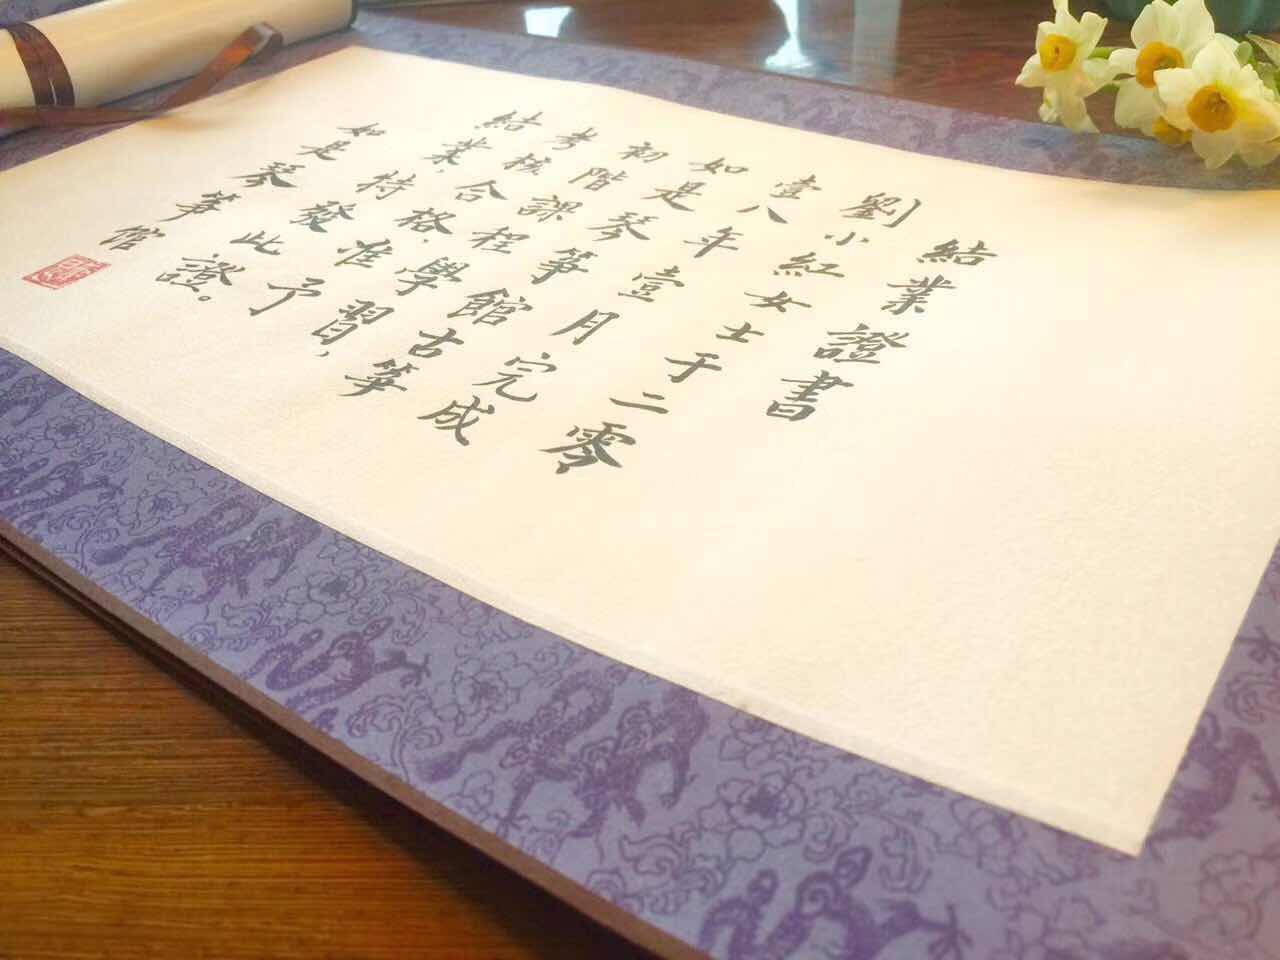 結業證書
劉小紅女士于二零
壹八年壹月完成
如是琴箏館古箏
初階課程學習，
考核合格，准予
結業，特發此證。
如是琴箏館